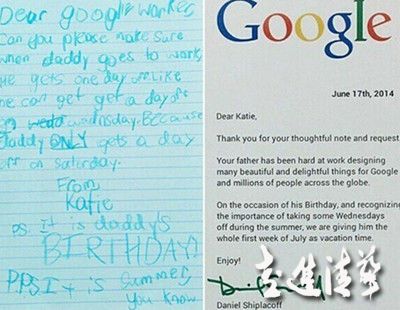 Dear google worker,
Can you please make sure
when daddy goes to work,
he gets one day off. Like
he can get get a day off
on wednsday. Because
daddy ONLY gets a day
off on saturday.
From
Katie
ps. It is daddy's
BIRTHDAY!
PPS It is summer,
you know
Google
June 17th, 2014
Dear Katie,
Thank you for your thoughtful note and request
Your father has been hard at work designing
many beautiful and delightful things for Google
and millions of people across the globe.
On the occasion of his Birthday, and recognizing
the importance of taking some Wednesdays
off during the summer, we are giving him the
whole first week of July as vacation time.
Enjoy!
Daniel Shiplacoff